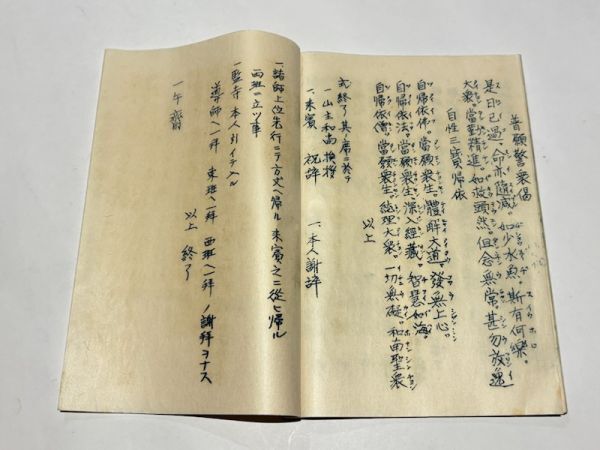 普賢警衆偈
是日已過。命亦随減。如少水魚。斯有何樂。
大衆當勤精進。如救頭然。但念無常甚勿放逸
自性三寶帰依
自帰依佛。當願衆生。體解大道。發無上心。
自帰依法。當願衆生。深入經藏。智慧如海。
自帰依僧。當願衆生。統理大衆。一切無礙。和南聖衆
以上
式終了其ノ席ニ於テ
一、山主和尚 挨拶
一、来賓 祝辞 一、本人謝辞
一、諸師上位先行ニテ方丈ヘ帰ル 来賓之ニ從ヒ帰ル
西班ニ立ツ事
一監寺 本人引イテ入ル
導師ヘ一拝 東班ヘ一拝 西班ヘ一拝 ノ謝拝ヲナス
以上 終了
一午齋